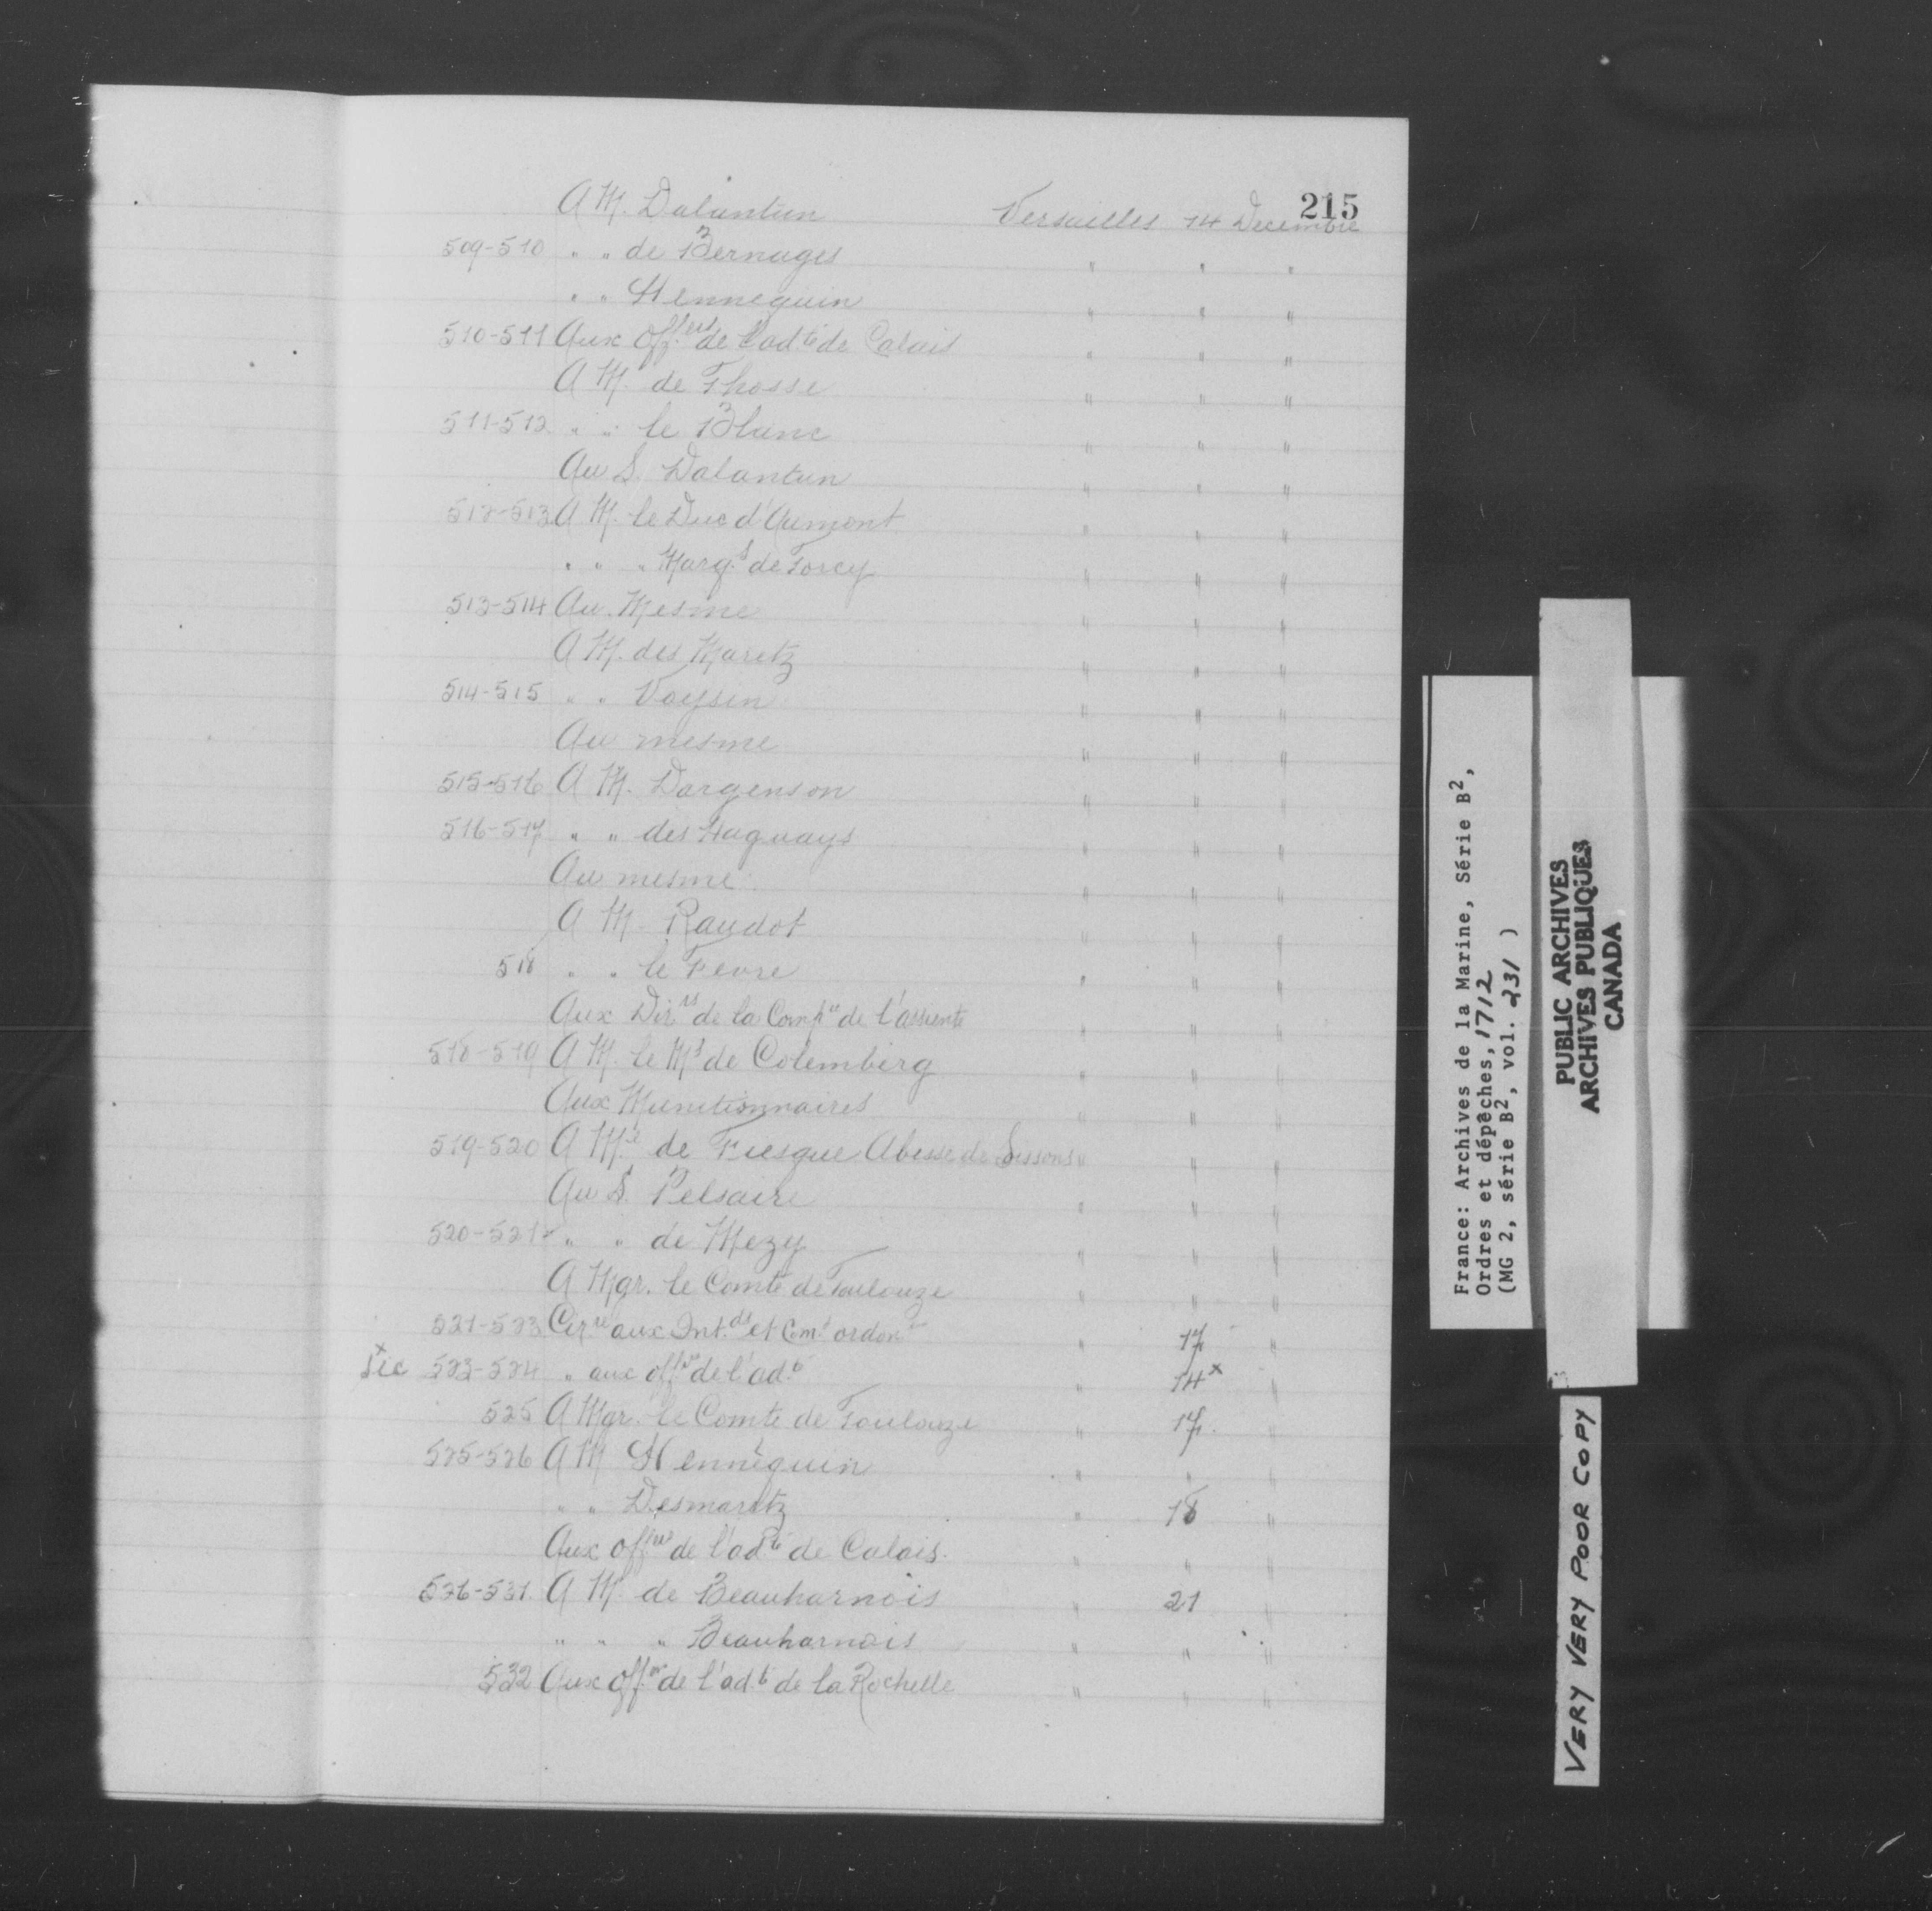 215
A M. Dalantun Versailles 14 Decembre
509-510 " " de Bernages " " "
" " Hennequin " " "
510-511 Aux offers de l'adté de Calais " " "
A M. de Thosse " " "
511-512 " " le Blanc " " "
Au S. Dalantun " " "
512-513 A M. le Duc d'Aumont " " "
" " " Marqs de Torcy " " "
513-514 Au Mesme " " "
A M. des Maretz " " "
514-515 " " Voysin " " "
Au mesme " " "
515-516 A M. Dargenson " " "
516-517 " " des Haguays " " "
Au mesme " " "
A M. Raudot " " "
518 " " le Fevre " " "
Aux Dirrs de la Compie de l'assiente " " "
518-519 A M. le Ms de Colemberg " " "
Aux Munitionnaires " " "
519-520 A Me de Fiesque Abesse de Soissons " " "
Au S. Pelsaire " " "
520-521 " " de Mezy " " "
A Mgr. le Comte de Toulouze " " "
521-523 Cirre aux Int.ds et Coms ordon " 17 "
x
sic 523-524 " aux offrs de l'adté " 14x "
525 A Mgr. le Comte de Toulouze " 17. "
525-526 A M Hennequin " " "
" " Desmaretz " 18 "
Aux offrs de l'adté de Calais. " " "
526-531 A M. de Beauharnois " 21 "
" " " Beauharnois " " "
532 Aux offrs de l'adté de la Rochelle " " "
France: Archives de la Marine, Série B2,
Ordres et dépêches, 1712
(MG 2, série B2, vol. 231 )
PUBLIC ARCHIVES
ARCHIVES PUBLIQUES
CANADA
VERY VERY POOR COPY